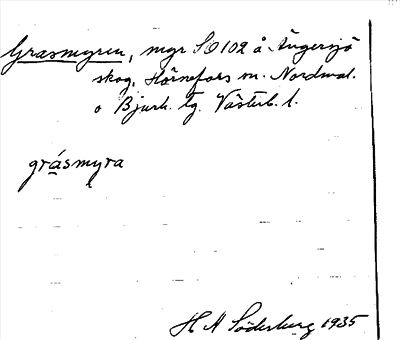 Grasmyren, mgr SO 102 å Ängersjö
skog, Hörnefors m. Nordmal.
o Bjurh. tg. Västerb. l.
gråsmyra
H A Söderberg 1935